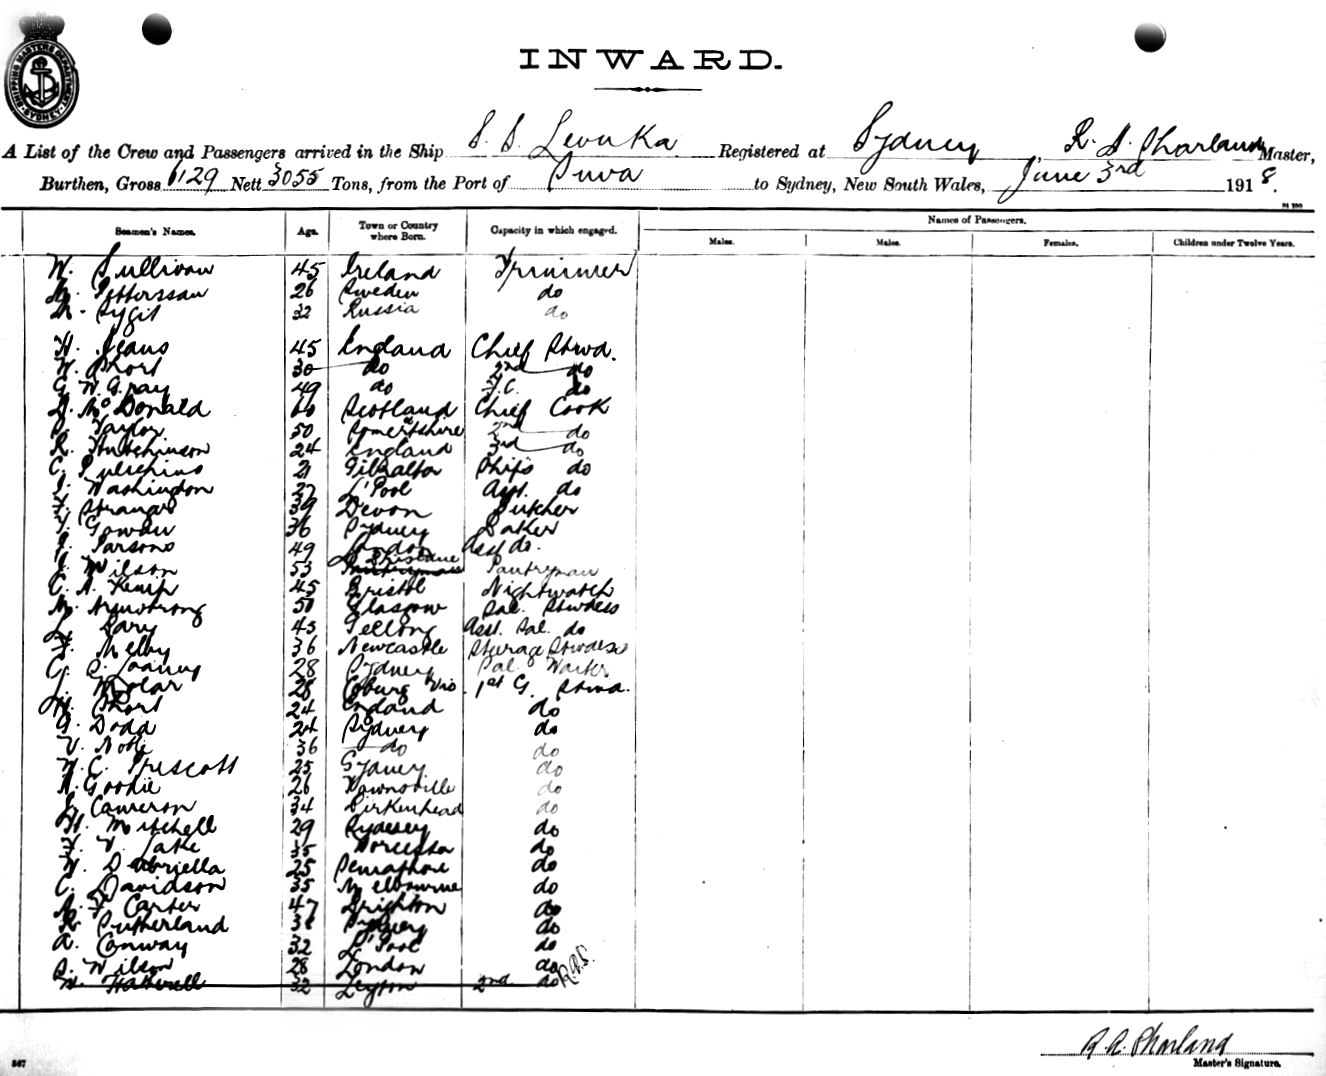 SHIPPING MASTERS DEPARTMENT SYDNEY
INWARD.
A List of the Crew and Passengers arrived in the Ship S. S. Levuka Registered at Sydney, R. A. Pharland Master,
Burthen, Gross 6129 Nett 3055 Tons, from the Port of Suva to Sydney, New South Wales, June 3rd 1918.
Names of Passengers.
Seamen's Names. Age. Town or Country where Born. Capacity in which engaged. Males. Males. Females. Children under Twelve Years.
W. Sullivan 45 Ireland Trimmer
Petterssan 26 Sweden do
32 Russia do
H. Jeans 45 England Chief Stwd.
W. Short 30 do 2nd do
G. W. Gray 49 do F.C. do
D. McDonald 60 Scotland Chief Cook
Taylor 50 Somertshire 2nd do
R. Hutchinson 24 England 3rd do
C. 21 Gibraltar Ships do
Washington 27 L'Pool Asst. do
Stranger 39 Devon Butcher
Gowan 36 Sydney Baker
Parsons 49 London Asst do.
J. Wilson 53 Brisbane Pantryman
C. A. Kemp 45 Bristol Nightwatch
M. Armstrong 50 Glasgow Sal. Stwdess
L. 45 Asst. Sal. do
Melby 36 Newcastle Stwdess
C. 28 Sydney Sal. Waiter
L. Molar 28 Coburg Vic 1st G. Stwd.
Short 24 England do
Dodd 24 Sydney do
V. 36 do do
W. C. Prescott 25 Sydney do
A. Goodie 26 Townsville do
Cameron 34 Birkenhead do
H. Mitchell 29 Sydney do
Lake 35 do
W. 25 do
C. Davidson 35 Melbourne do
A. F. Carter 47 Brighton do
R. Sutherland Sydney do
A. Conway 32 L'Pool do
S. Wilson 28 London do
W. 32 Leyton 2nd do
R. A. Pharland
Master's Signature.
567